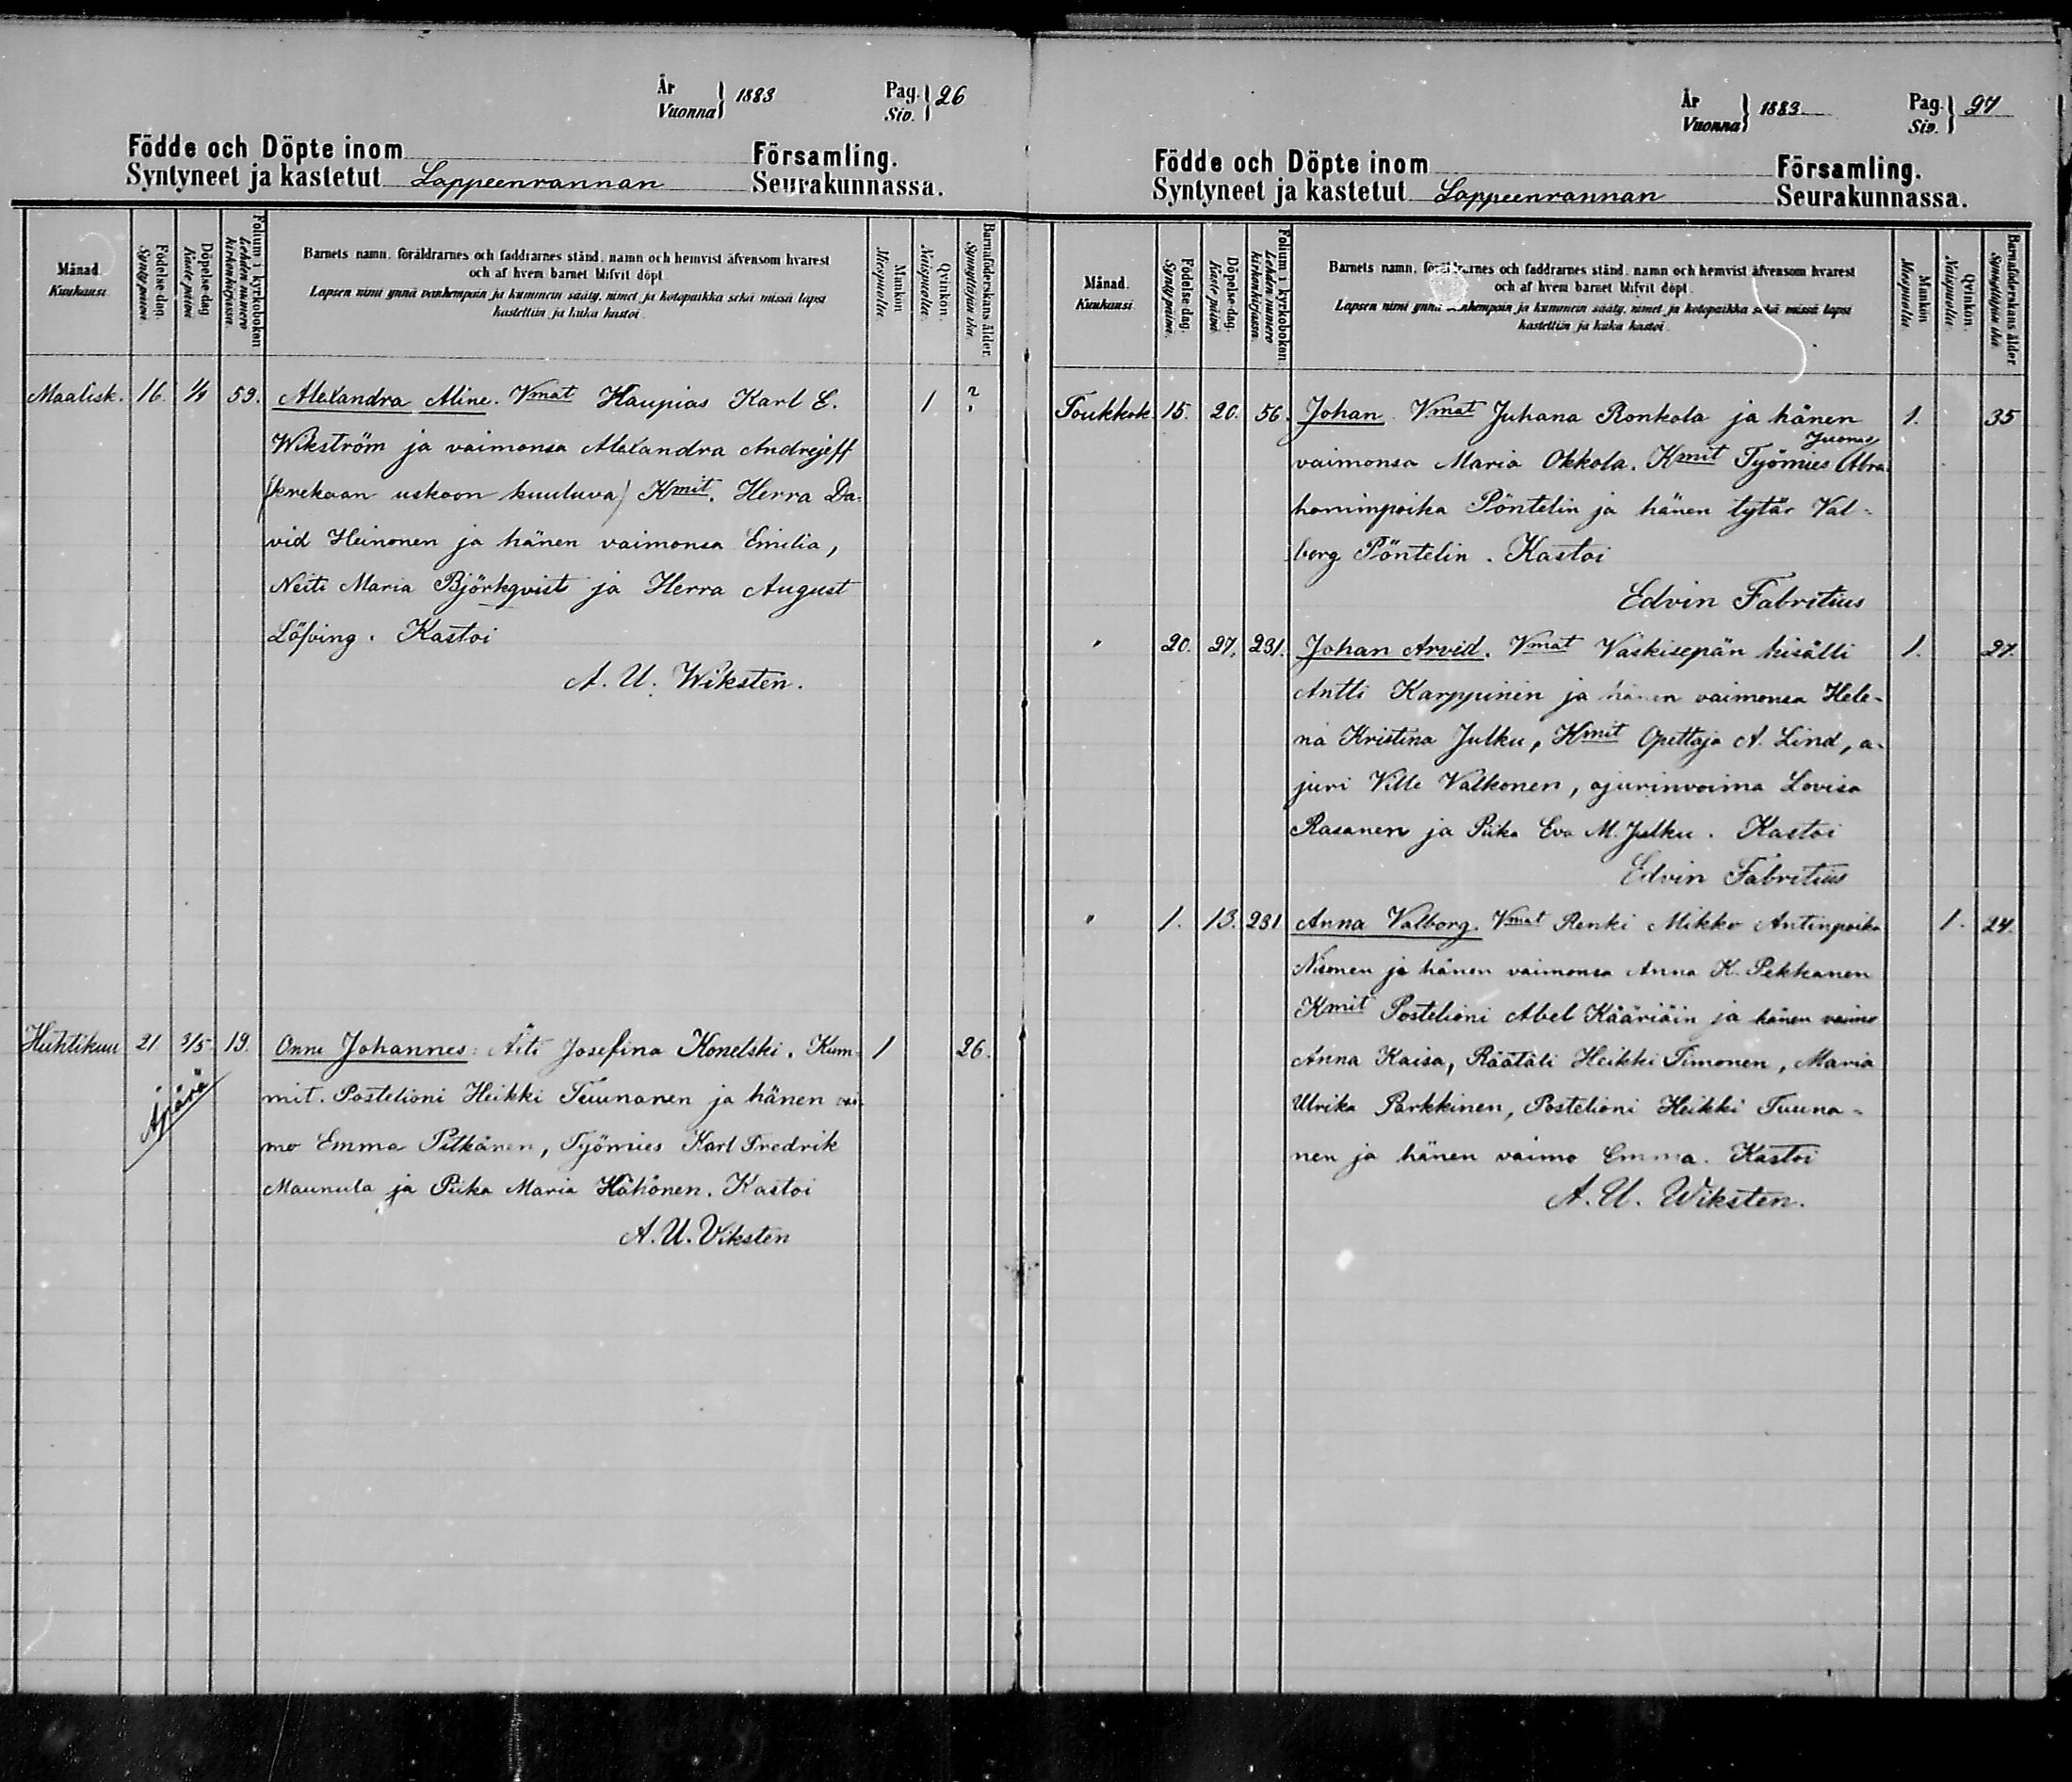 År
Vuonna } 1883
Pag.
Siv. } 26
Födde och Döpte inom Församling.
Syntyneet ja kastetut Lappeenrannan Seurakunnassa.
Månad.
Kuukausi.
Födelse-dag.
Syntypäivä.
Döpelse-dag
Kastepäivä
Folium i kyrkoboken
Lehden numero
kirkonkirjassa.
Barnets namn, föräldrarnes och faddrarnes stånd, namn och hemvist äfvensom hvarest
och af hvem barnet blifvit döpt.
Lapsen nimi ynnä vanhempain ja kummein sääty, nimet ja kotopaikka sekä missä lapsi
kastettiin ja kuka kastoi
Mankön
Miespuolia.
Qvinkön.
Naispuolia.
Barnaföderskans ålder.
Synnyttäjän ikä.
Maalisk. 16. 1/4 59. Alexandra Aline. Vmat Haupias Karl E. 1 ?
Wikström ja vaimonsa Alexandra Andrejeff
(krekaan uskoon kuuluva) Kmit. Herra Da-
vid Heinonen ja hänen vaimonsa Emilia,
Neiti Maria Björkqvist ja Herra August
Löfving. Kastoi
A. U. Wiksten.
Huhtikuu 21. 3/5 19. Onni Johannes: Äiti Josefina Konelski. Kum- 1 26.
Äpärä
mit. Postelioni Heikki Tuunanen ja hänen vai-
mo Emma Pitkänen, Työmies Karl Fredrik
Maunula ja Piika Maria Hähönen. Kastoi
A. U. Viksten
År
Vuonna } 1883
Pag.
Siv. } 27
Födde och Döpte inom Församling.
Syntyneet ja kastetut Lappeenrannan Seurakunnassa.
Månad.
Kuukausi.
Födelse-dag.
Syntypäivä.
Döpelse-dag.
Kastepäivä.
Folium i kyrkoboken.
Lehden numero
kirkonkirjassa.
Barnets namn, föräldrarnes och faddrarnes stånd, namn och hemvist äfvensom hvarest
och af hvem barnet blifvit döpt.
Lapsen nimi ynnä vanhempain ja kummein sääty, nimet ja kotopaikka sekä missä lapsi
kastettiin ja kuka kastoi.
Mankön
Miespuolia
Qvinkön.
Naispuolia.
Barnaföderskans ålder
Synnyttäjän ikä
Toukkok. 15. 20. 56. Johan. Vmat Juhana Ronkola ja hänen 1. 35
vaimonsa Maria Okkola. Kmit Työmies Juonas Abra-
haminpoika Pöntelin ja hänen tytär Val-
borg Pöntelin. Kastoi
Edvin Fabritius
" 20. 27. 231. Johan Arvid. Vmat Vaskisepän kisälli 1. 27.
Antti Karppinen ja hänen vaimonsa Hele-
na Kristina Julku, Kmit Opettaja A. Lind, a-
juri Ville Valkonen, ajurinvaimo Lovisa
Rasanen ja Piika Eva M. Julku. Kastoi
Edvin Fabritius
" 1. 13. 231 Anna Valborg. Vmat Renki Mikko Antinpoika 1. 24.
Niemen ja hänen vaimonsa Anna K. Pekkanen
Kmit Postelioni Abel Kääriäin ja hänen vaimo
Anna Kaisa, Räätäli Heikki Timonen, Maria
Ulrika Parkkinen, Postelioni Heikki Tuuna-
nen ja hänen vaimo Emma. Kastoi
A. U. Wiksten.